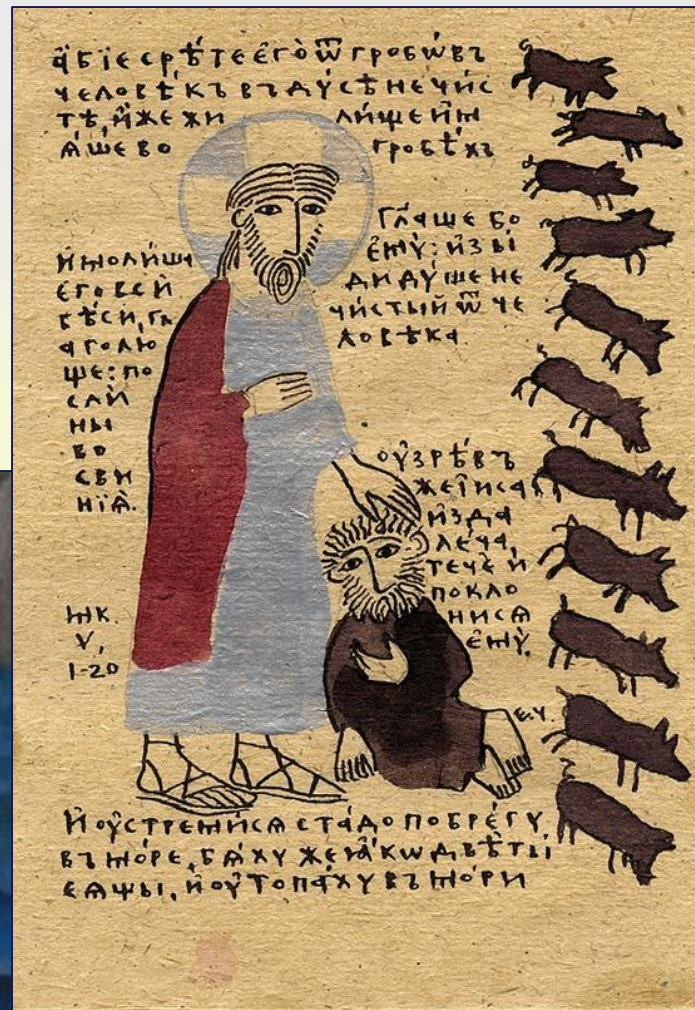 а҆́бїе срѣ́те е҆го̀ ѿ гробѡ́въ
человѣ́къ въ ду́сѣ нечи́с
тѣ, и҆́же жи ли́ще и҆м
ѧ́ше во гробѣ́хъ
гл҃аше бо
е҆му̀: и҆зы
ди ду́ше не
чи́стый ѿ че
ловѣ́ка.
и҆ моли́ша
е҆го вси́
бѣ́си, гл
аголю
ще: по
сли́
ны
во
сви
нїѧ̑.
оу҆зрѣ́въ
же і҆иса
и҆зда
ле́ча,
течѐ и҆
покло
нисѧ
е҆му̀.
мк.
V,
1-20
е.ч.
и҆ оу҆стреми́сѧ ста́до по бре́гу,
въ мо́ре, бѧ́ху же ꙗ҆́кѡ двѣ́ ты
сѧщы, и҆ оу҆топа́ху въ мо́ри